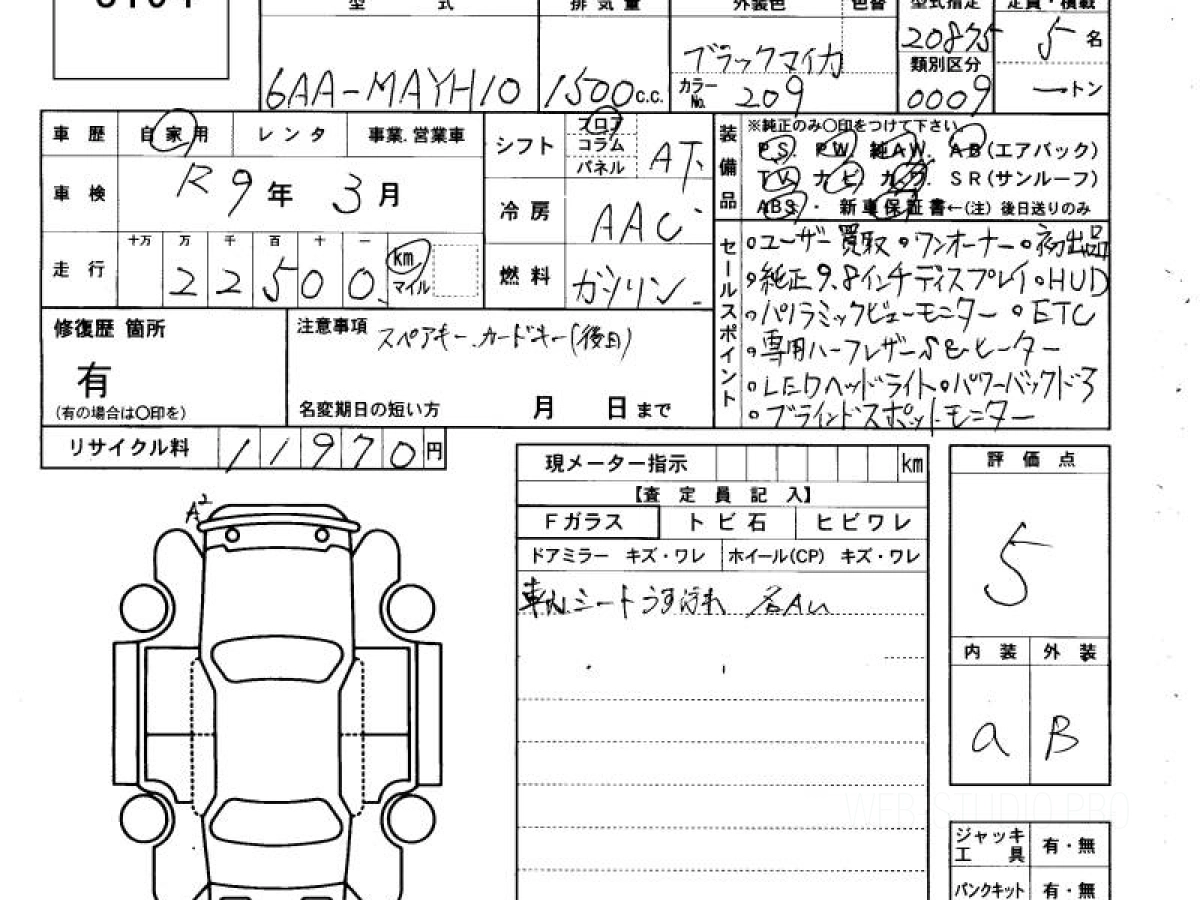 型 式 排 気 量 外装色 色替 型式指定 定員・積載
6AA-MAYH10 1500c.c. ブラックマイカ 20875 5名
カラーNo. 209 類別区分 0009 ートン
車 歴 自 家 用 レ ン タ 事業.営業車
シフト フロア コラム パネル AT
車 検 R9年 3月
冷 房 AAC
走 行 十万 万 千 百 十 一
22500. km マイル
燃 料 ガソリン
装備品 ※純正のみ〇印をつけて下さい
PS. PW. 純AW. AB(エアバック)
TV. ナ ビ. カ ワ. SR(サンルーフ)
ABS. ・ 新車保証書←(注) 後日送りのみ
セールスポイント
・ユーザー買取・ワンオーナー・初出品
・純正9.8インチディスプレイ・HUD
・パノラミックビューモニター ・ETC
・専用ハーフレザーS&ヒーター
・LEDヘッドライト・パワーバックドア
・ブラインドスポットモニター
修復歴 箇所
有
(有の場合は〇印を)
注意事項 スペアキー.カードキー(後日)
名変期日の短い方 月 日まで
リサイクル料 11970円
現メーター指示 km
【査 定 員 記 入】
Fガラス ト ビ 石 ヒ ビ ワ レ
ドアミラー キズ・ワレ ホイール(CP) キズ・ワレ
車内シートうす汚れ 各AU
評 価 点
5
内 装 外 装
a B
A2
ジャッキ 工 具 有・無
パンクキット 有・無
WEB STUDIO PRO